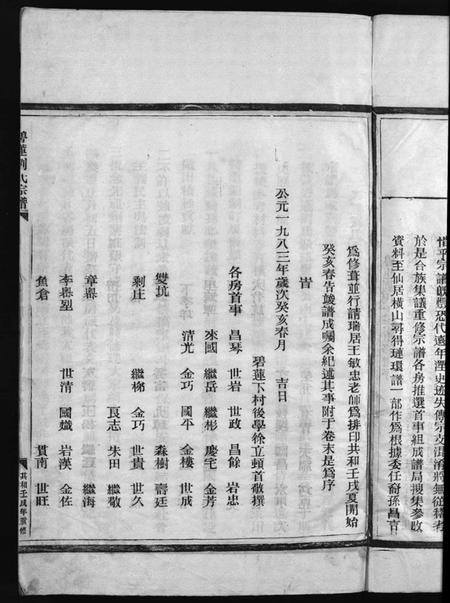 於是合族集議重修宗譜各房推選首事組成譜局搜集參攷
資料至仙居橫山尋得璉環譜一部作爲根據委任裔孫昌言
爲修葺並行請瑞居王敏忠老師爲排印共和壬戌夏開始
癸亥春告竣譜成囑余紀述其事附于卷末是爲序
旹
公元一九八三年歲次癸亥春月 吉日
碧蓮下村後學徐立頞首敬撰
各房首事 昌琴 世岩 世政 昌餘 岩忠
來國 繼岳 繼彬 慶宅 金芳
清光 金巧 國平 金樓 世成
雙坑 森樹 壽廷
剩庄 繼梯 金巧 世貴 世久
良志 朱田 繼敬
章嶴 繼海
李嶴 世清 國熾 岩漢 金佐
魚倉 貫南 世旺
劉氏宗譜
共和壬戌年重修